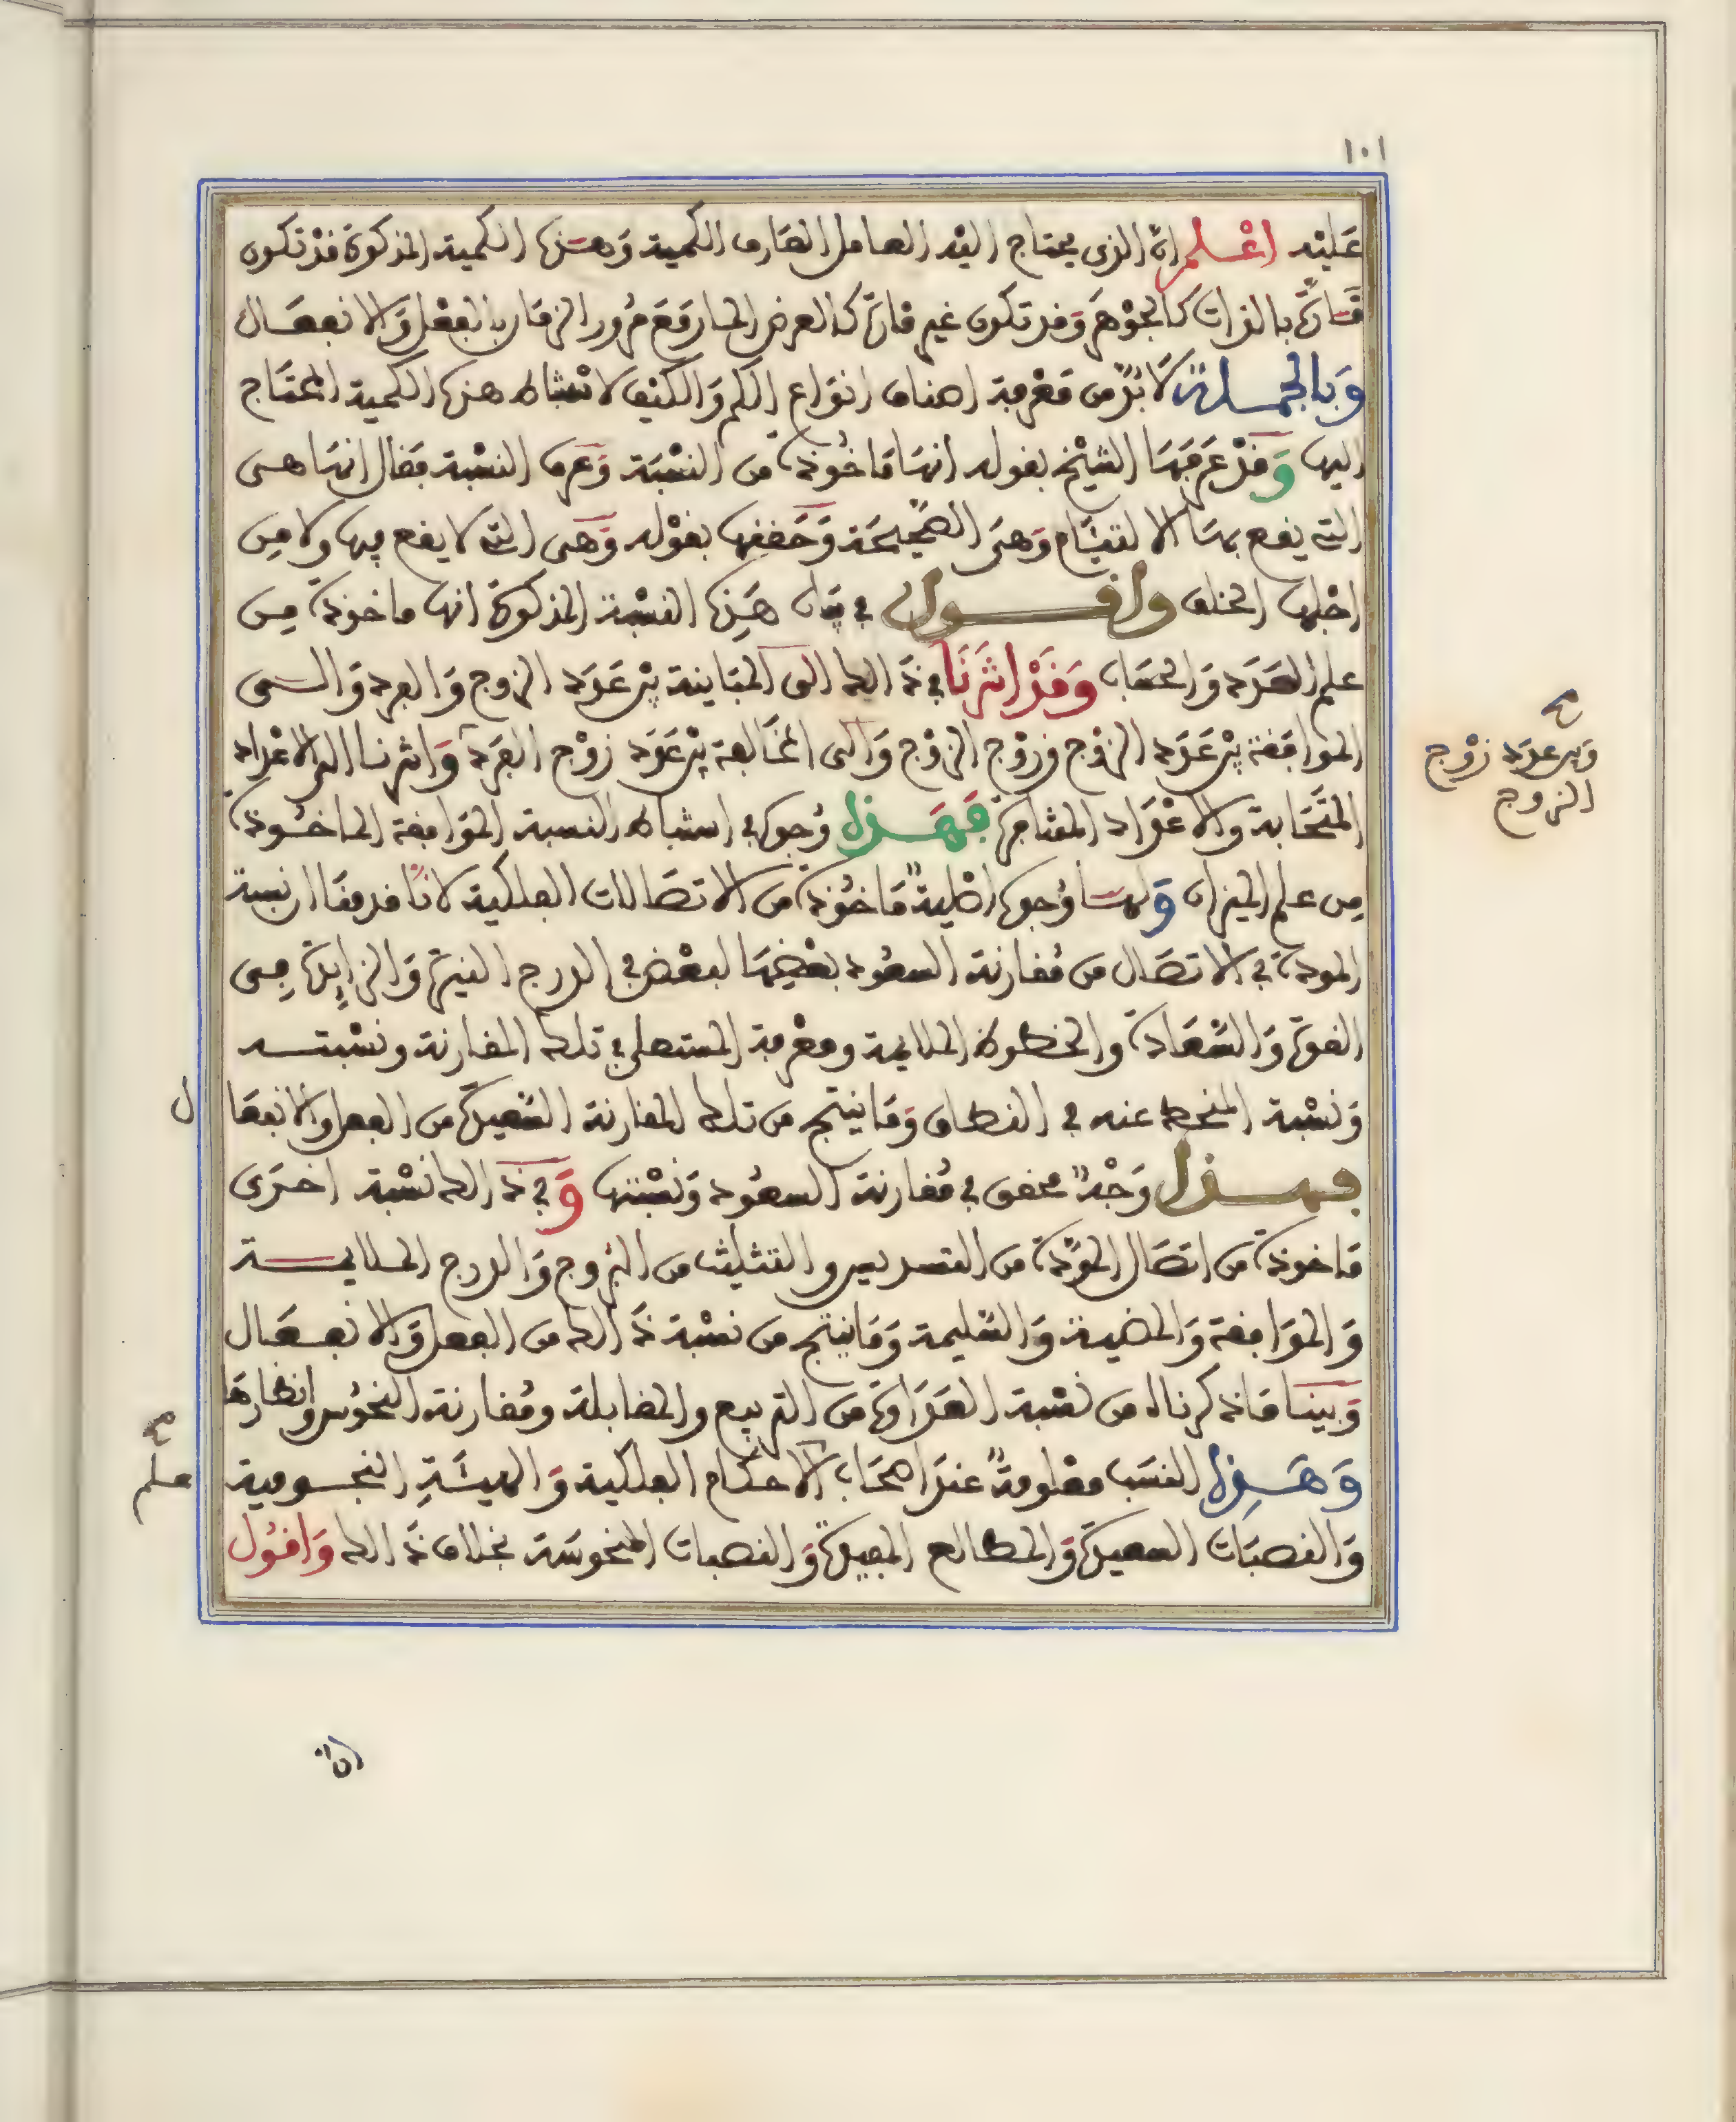 ١٠١
عليه اعلم ان الذي يحتاج اليه العامل العارف الكمية وهذه الكمية المذكورة قد تكون
قارة بالذات كالجوهر وقد تكون غير قارة كالعرض الحار مع مرور الزمان بالفعل والانفعال
وبالجملة لا بد من معرفة اصناف انواع الكم والكيف لاستنباط هذه الكمية المحتاج
اليها وقد عرفها الشيخ بقوله انها ماخوذة من النسبة وعرف النسبة فقال انها هي
التي يقع بها الالتيام وهي الصحيحة وحققها بقوله وهي التي لا يقع فيها ولا من
اجلها الخلف واقول في بيان هذه النسبة المذكورة انها ماخوذة من
علم العدد والحساب وقد اشرنا في ذالك الى المباينة بين عدد الزوج والفرد والى
الموافقة بين عدد الزوج وزوج الزوج والى المخالفة بين عدد زوج الفرد واشرنا الى الاعداد
المتحابة والاعداد المتنافرة فهذا وجه في استنباط النسبة الموافقة الماخوذة
من علم الميزان ولها وجوه اصلية ماخوذة من الاتصالات الفلكية لانا قدمنا ان نسبة
المودة في الاتصال من مقارنة السعود بعضها لبعض في الدرج النيرة والزايدة من
القوة والسعادة والحظوظ الملايمة ومعرفة المستعلي في تلك المقارنة ونسبته
ونسبة المنحط عنه في النطاق وما ينتج من تلك المقارنة السعيدة من الفعل والانفعا
ل
فهذا وجه محقق في مقارنة السعود ونسبتها وفي ذالك نسبة اخرى
ماخوذة من اتصال المودة من التسديس والتثليث من البروج والدرج الملايمة
والموافقة والمضيئة والسليمة وما ينتج من نسبة ذالك من الفعل والانفعال
وبينا ما ذكرناه من نسبة العداوة من التربيع والمقابلة ومقارنة النحوس وانظارها
وهذه النسب معلومة عند اصحاب الاحكام الفلكية والهيئة النجومية
والنصبات السعيدة والمطالع المفيدة والنصبات المنحوسة بخلاف ذالك واقول
وبين عدد زوج
الزوج
علم
ان